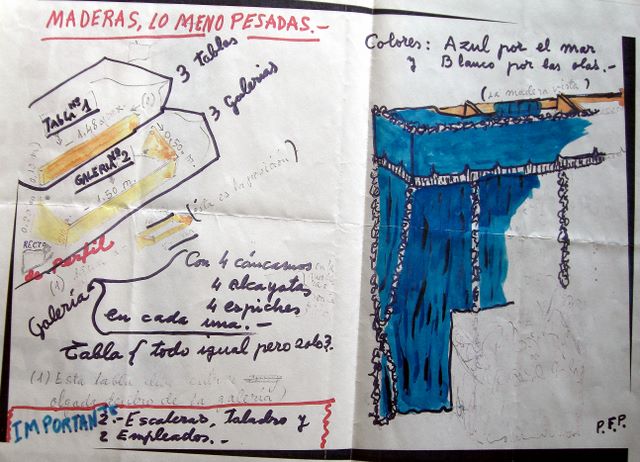 MADERAS, LO MENO PESADAS.-
3 tablas
TABLA Nº 1
(1)
1.48 m.
3 Galerias
GALERIA Nº 2
0.50 m.
1.50 m.
(Esta es la posición)
RECTO
de Perfil
(1)
Galería
Con 4 cáncamos
4 alcayatas
4 espiches
en cada una.-
Tabla { todo igual pero solo 2.
(1) Esta tabla
dentro de la galería)
IMPORTANTE
2.- Escaleras, Taladro y
2 Empleados.-
Colores: Azul por el mar
y Blanco por las olas.-
(La madera vista)
P.F.P.